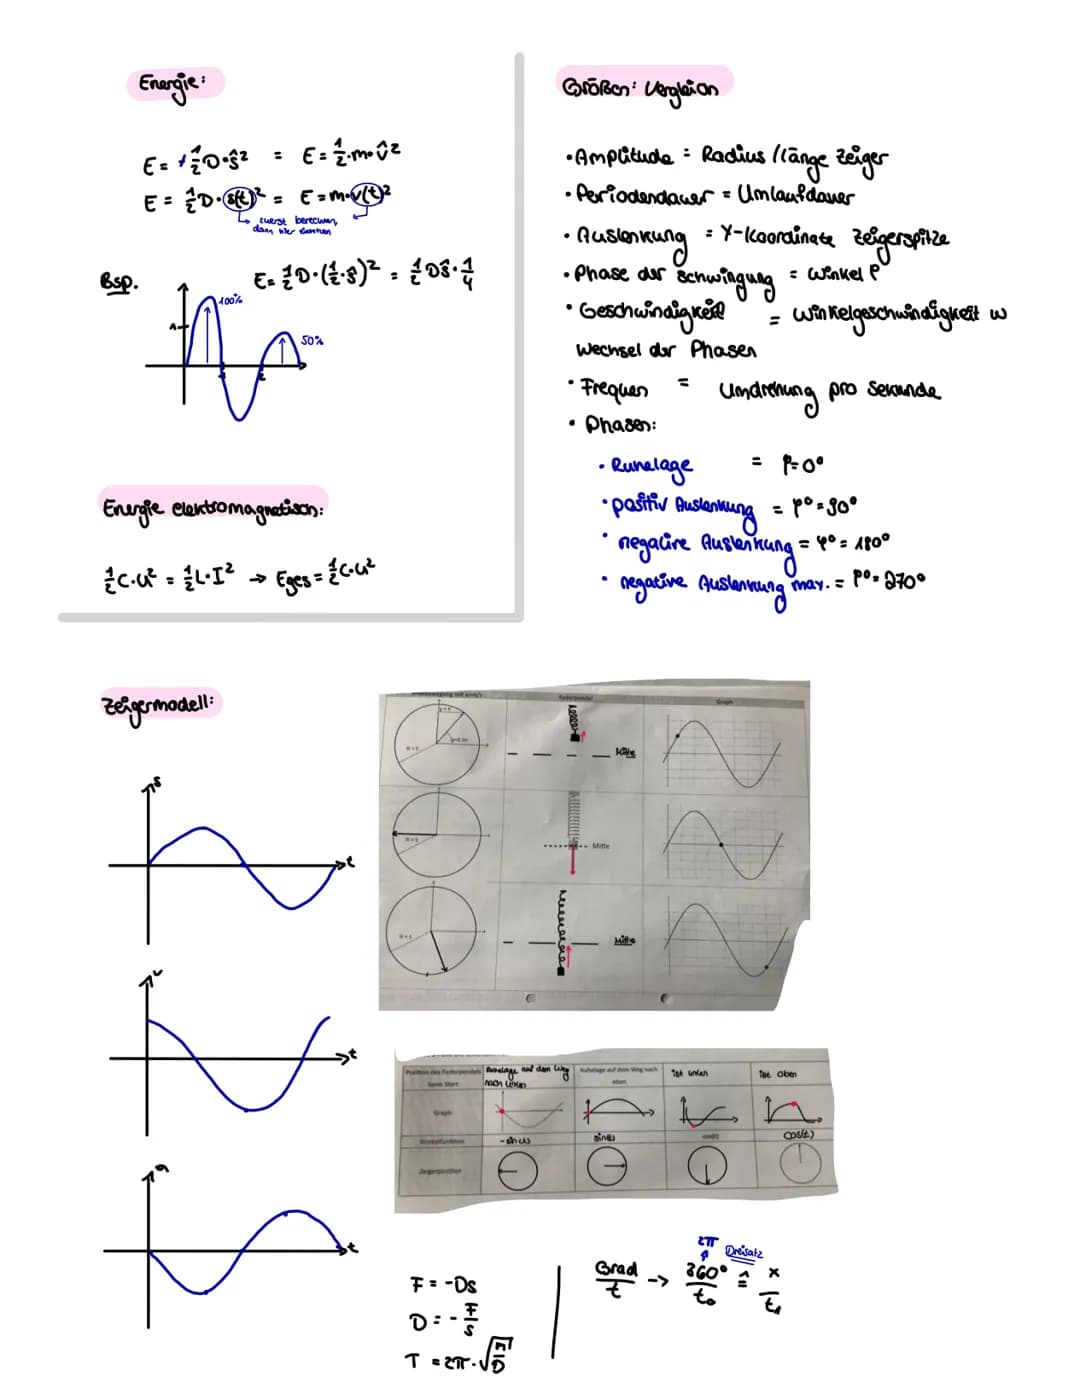 Energie:
E = +½D·ŝ² = E = ½·m·v̂²
E = ½D·s(t)² = E = m·v(t)²
zuerst berechnen,
dann hier einsetzen
Bsp.
E = ½D·(½·ŝ)² = ½Dŝ·¼
100%
50%
Energie elektromagnetisch:
½C·u² = ½L·I² → Eges = ½C·u²
Größen: Vergleich
• Amplitude = Radius / Länge Zeiger
• Periodendauer = Umlaufdauer
• Auslenkung = Y-Koordinate Zeigerspitze
• Phase der Schwingung = Winkel φ
• Geschwindigkeit = Winkelgeschwindigkeit w
Wechsel der Phasen
• Frequen = Umdrehung pro Sekunde
• Phasen:
• Ruhelage = φ=0°
• positiv Auslenkung = φ° = 90°
• negative Auslenkung = φ° = 180°
• negative Auslenkung max. = φ° = 270°
Zeigermodell:
s
t
v
t
a
t
Federpendel
Graph
Mitte
Mitte
Mitte
Position des Federpendels beim Start
Ruhelage auf dem Weg nach unten
Ruhelage auf dem Weg nach oben
ist unten
ist oben
Graph
-sin(t)
sin(t)
-cos(t)
cos(t)
Zeigerposition
F = -Ds
D = -F/s
T = 2π·√(m/D)
Grad/t → 360°/t₀ ≙ x/t₁
2π
Dreisatz